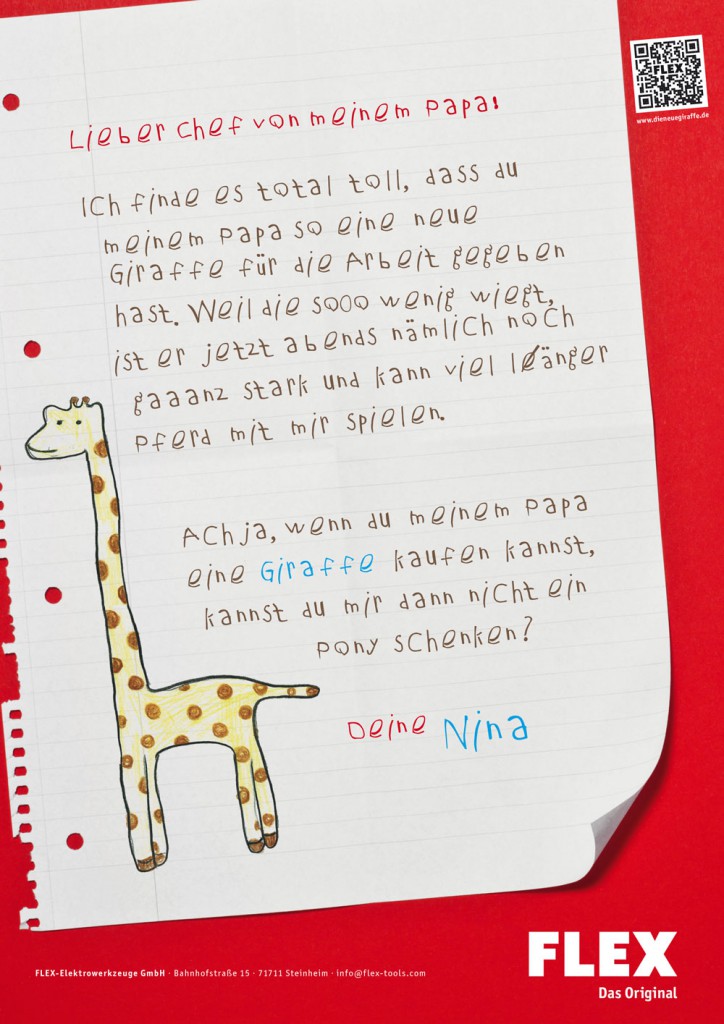 FLEX
www.dieneuegiraffe.de
Lieber Chef von meinem Papa!
Ich finde es total toll, dass du
meinem Papa so eine neue
Giraffe für die Arbeit gegeben
hast. Weil die sooo wenig wiegt,
ist er jetzt abends nämlich noch
gaaanz stark und kann viel länger
Pferd mit mir spielen.
Ach ja, wenn du meinem Papa
eine Giraffe kaufen kannst,
kannst du mir dann nicht ein
Pony schenken?
Deine Nina
FLEX
Das Original
FLEX-Elektrowerkzeuge GmbH · Bahnhofstraße 15 · 71711 Steinheim · info@flex-tools.com